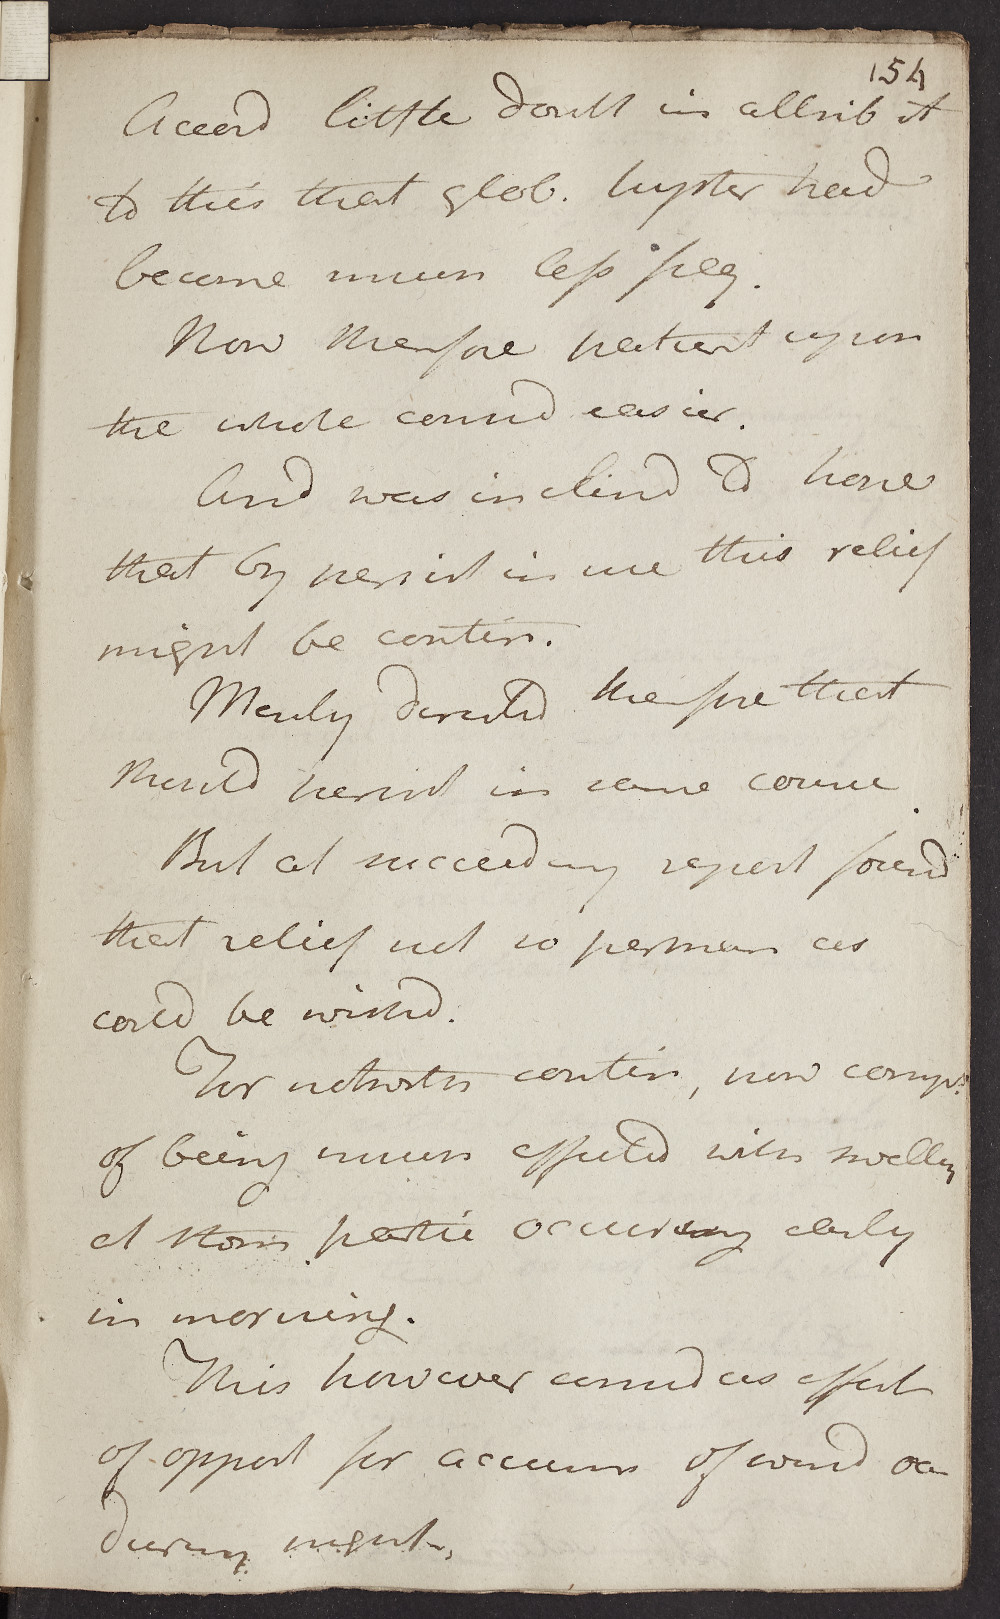 154
Accord little doubt in attrib it
to this that glob. hyster had
become much less freq.
Now therefore patient upon
the whole consid easier.
And was inclind to hope
that by persist in use this relief
might be contin.
Merely directed therefore that
should persist in same course.
But at succeeding report found
that relief not so perman as
could be wishd.
For notwith contin, now comp.
of being much affected with swelling
at stom partic occurring early
in morning.
This however considas effect
of opport for accum of wind
during night.